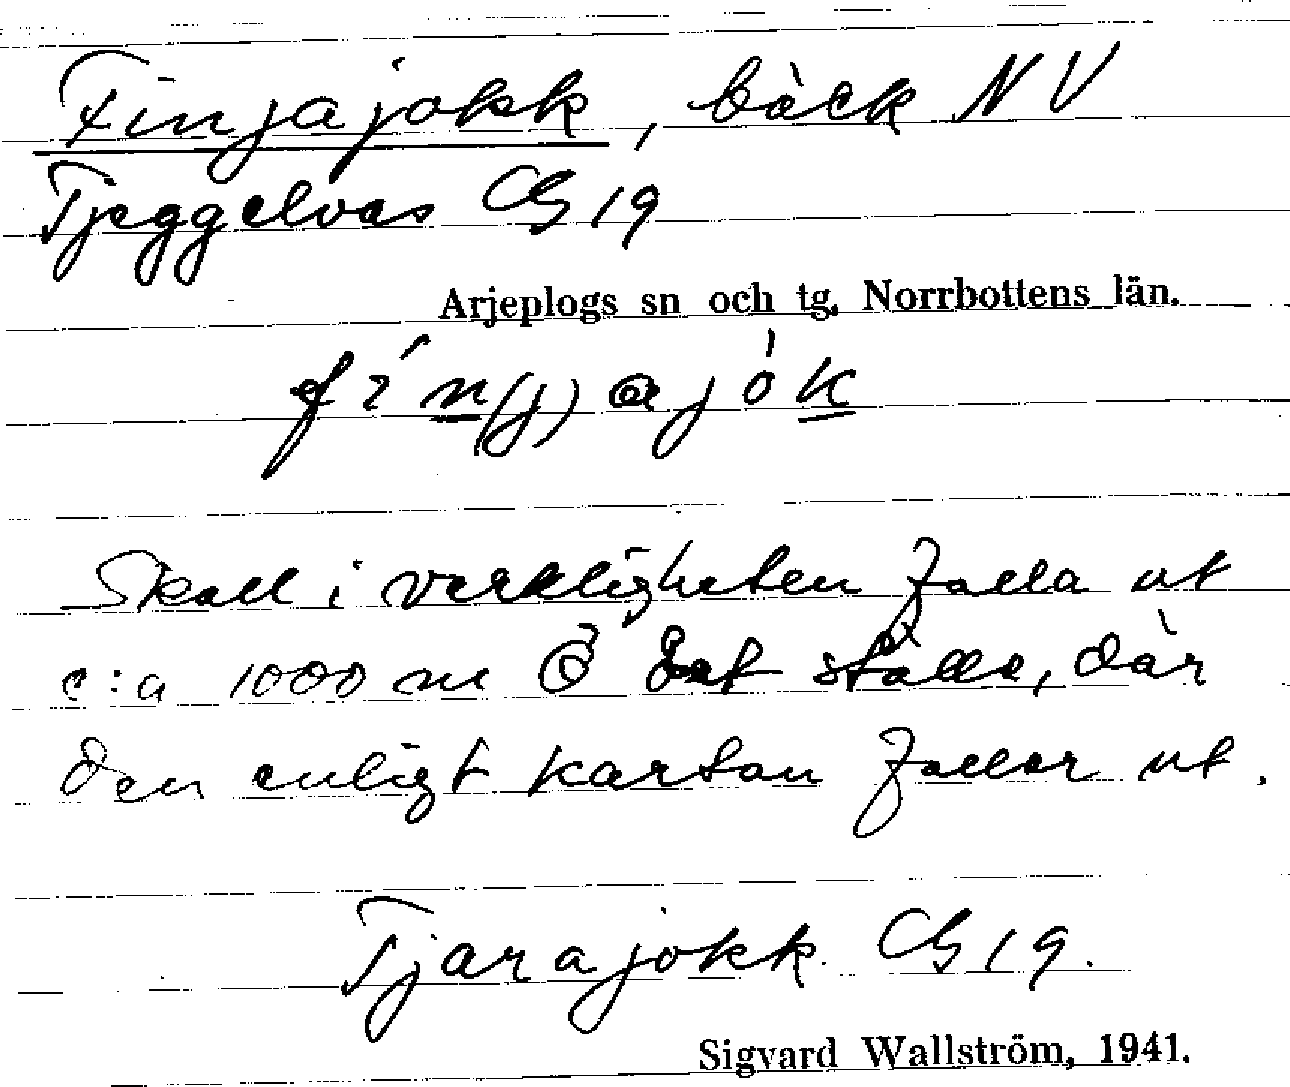 Finjajokk, bäck NV
Tjeggelvas CG 19
Arjeplogs sn och tg, Norrbottens län.
Skall i verkligheten falla ut
c:a 1000 m Ö det ställe, där
den enligt kartan faller ut.
Tjarajokk CG 19.
Sigvard Wallström, 1941.